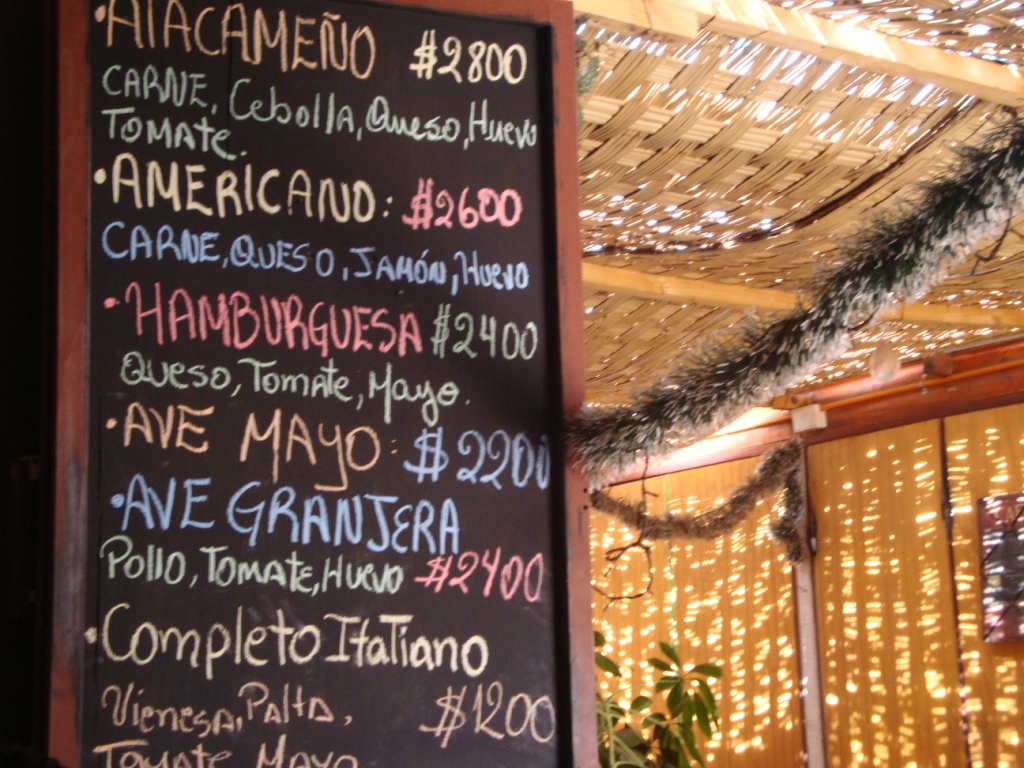 •ATACAMEÑO $2800
CARNE, Cebolla, Queso, Huevo
Tomate.
•AMERICANO: $2600
CARNE, QUESO, JAMÓN, Huevo
•HAMBURGUESA $2400
Queso, Tomate, Mayo.
•AVE MAYO: $2200
•AVE GRANJERA
Pollo, Tomate, Huevo $2400
•Completo Italiano
Vienesa, Palta, $1200
Tomate Mayo